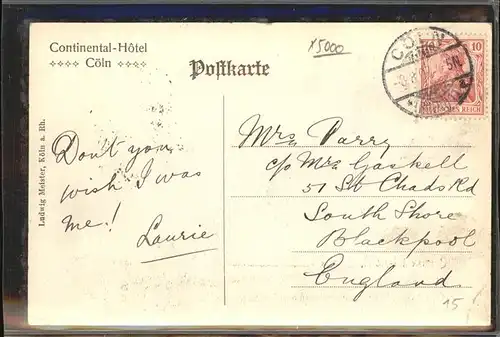 Continental-Hôtel
Cöln
Postkarte
x5000
CÖLN
10
DEUTSCHES REICH
Ludwig Meister, Köln a. Rh.
Don't you
wish I was
me!
Laurie
Mrs Parry
c/o Mrs Gaskell
51 St Chads Rd
South Shore
Blackpool
England
15